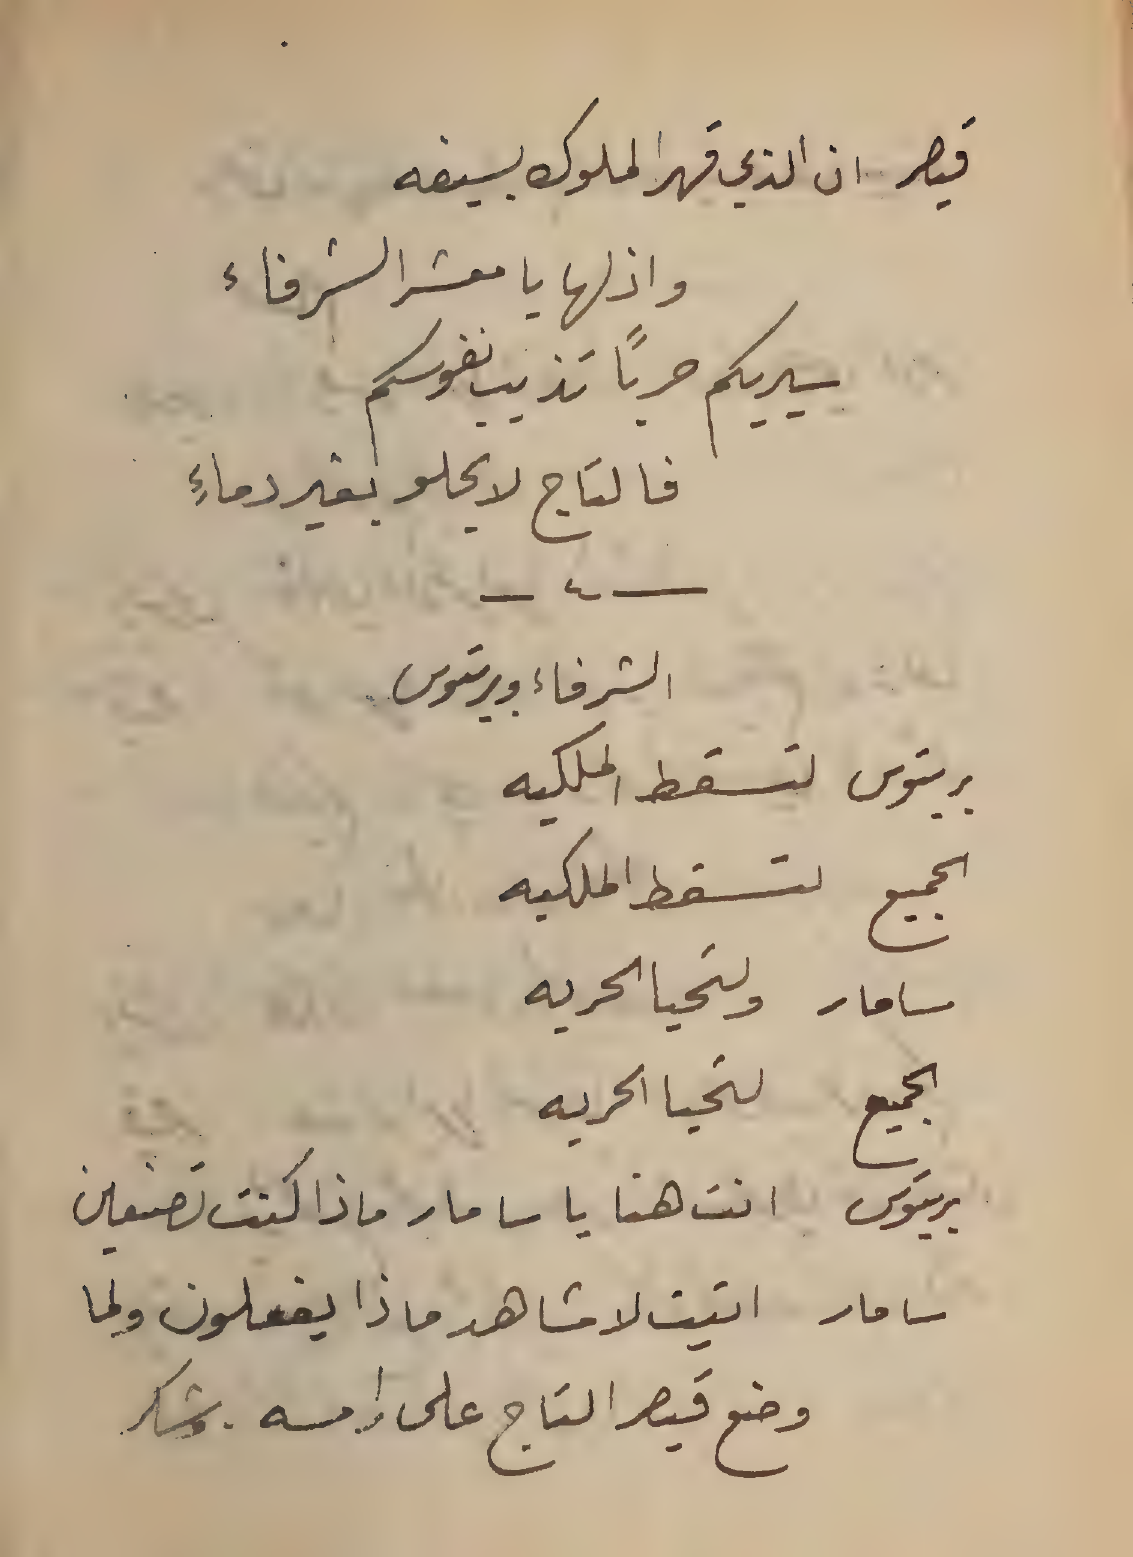 قيصر ان الذي قهر الملوك بسيفه
واذلها يا معشر الشرفاء
سيريكم حربًا تذيب نفوسكم
فالتاج لا يحلو بغير دماءِ
— ٤ —
الشرفاء وبريتوس
بريتوس لتسقط الملكيه
الجميع لتسقط الملكيه
سامار ولتحيا الحريه
الجميع لتحيا الحريه
بريتوس انت هنا يا سامار ماذا كنت تصنعين
سامار اتيت لاشاهد ماذا يفعلون ولما
وضع قيصر التاج على رأسه . وشكر